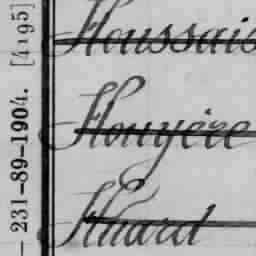 Houssais
Houyère
Huard
— 231-89-1904. [4195]